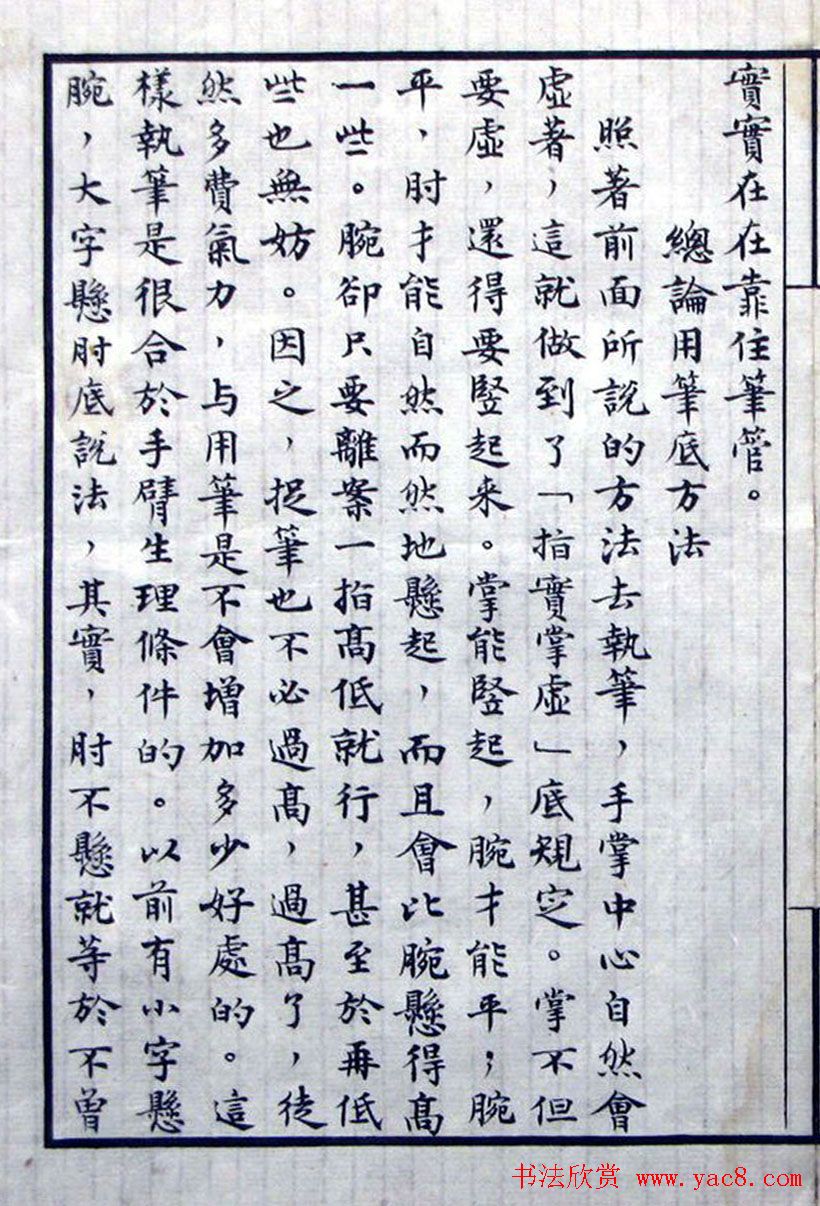 實實在在靠住筆管。
總論用筆底方法
照著前面所說的方法去執筆，手掌中心自然會
虛著，這就做到了「指實掌虛」底規定。掌不但
要虛，還得要竪起来。掌能竪起，腕才能平；腕
平，肘才能自然而然地懸起，而且會比腕懸得高
一些。腕卻只要離案一指高低就行，甚至於再低
些也無妨。因之，捉筆也不必過高，過高了，徒
然多費氣力，与用筆是不會增加多少好處的。這
樣執筆是很合於手臂生理條件的。以前有小字懸
腕，大字懸肘底說法，其實，肘不懸就等於不曾
书法欣赏 www.yac8.com